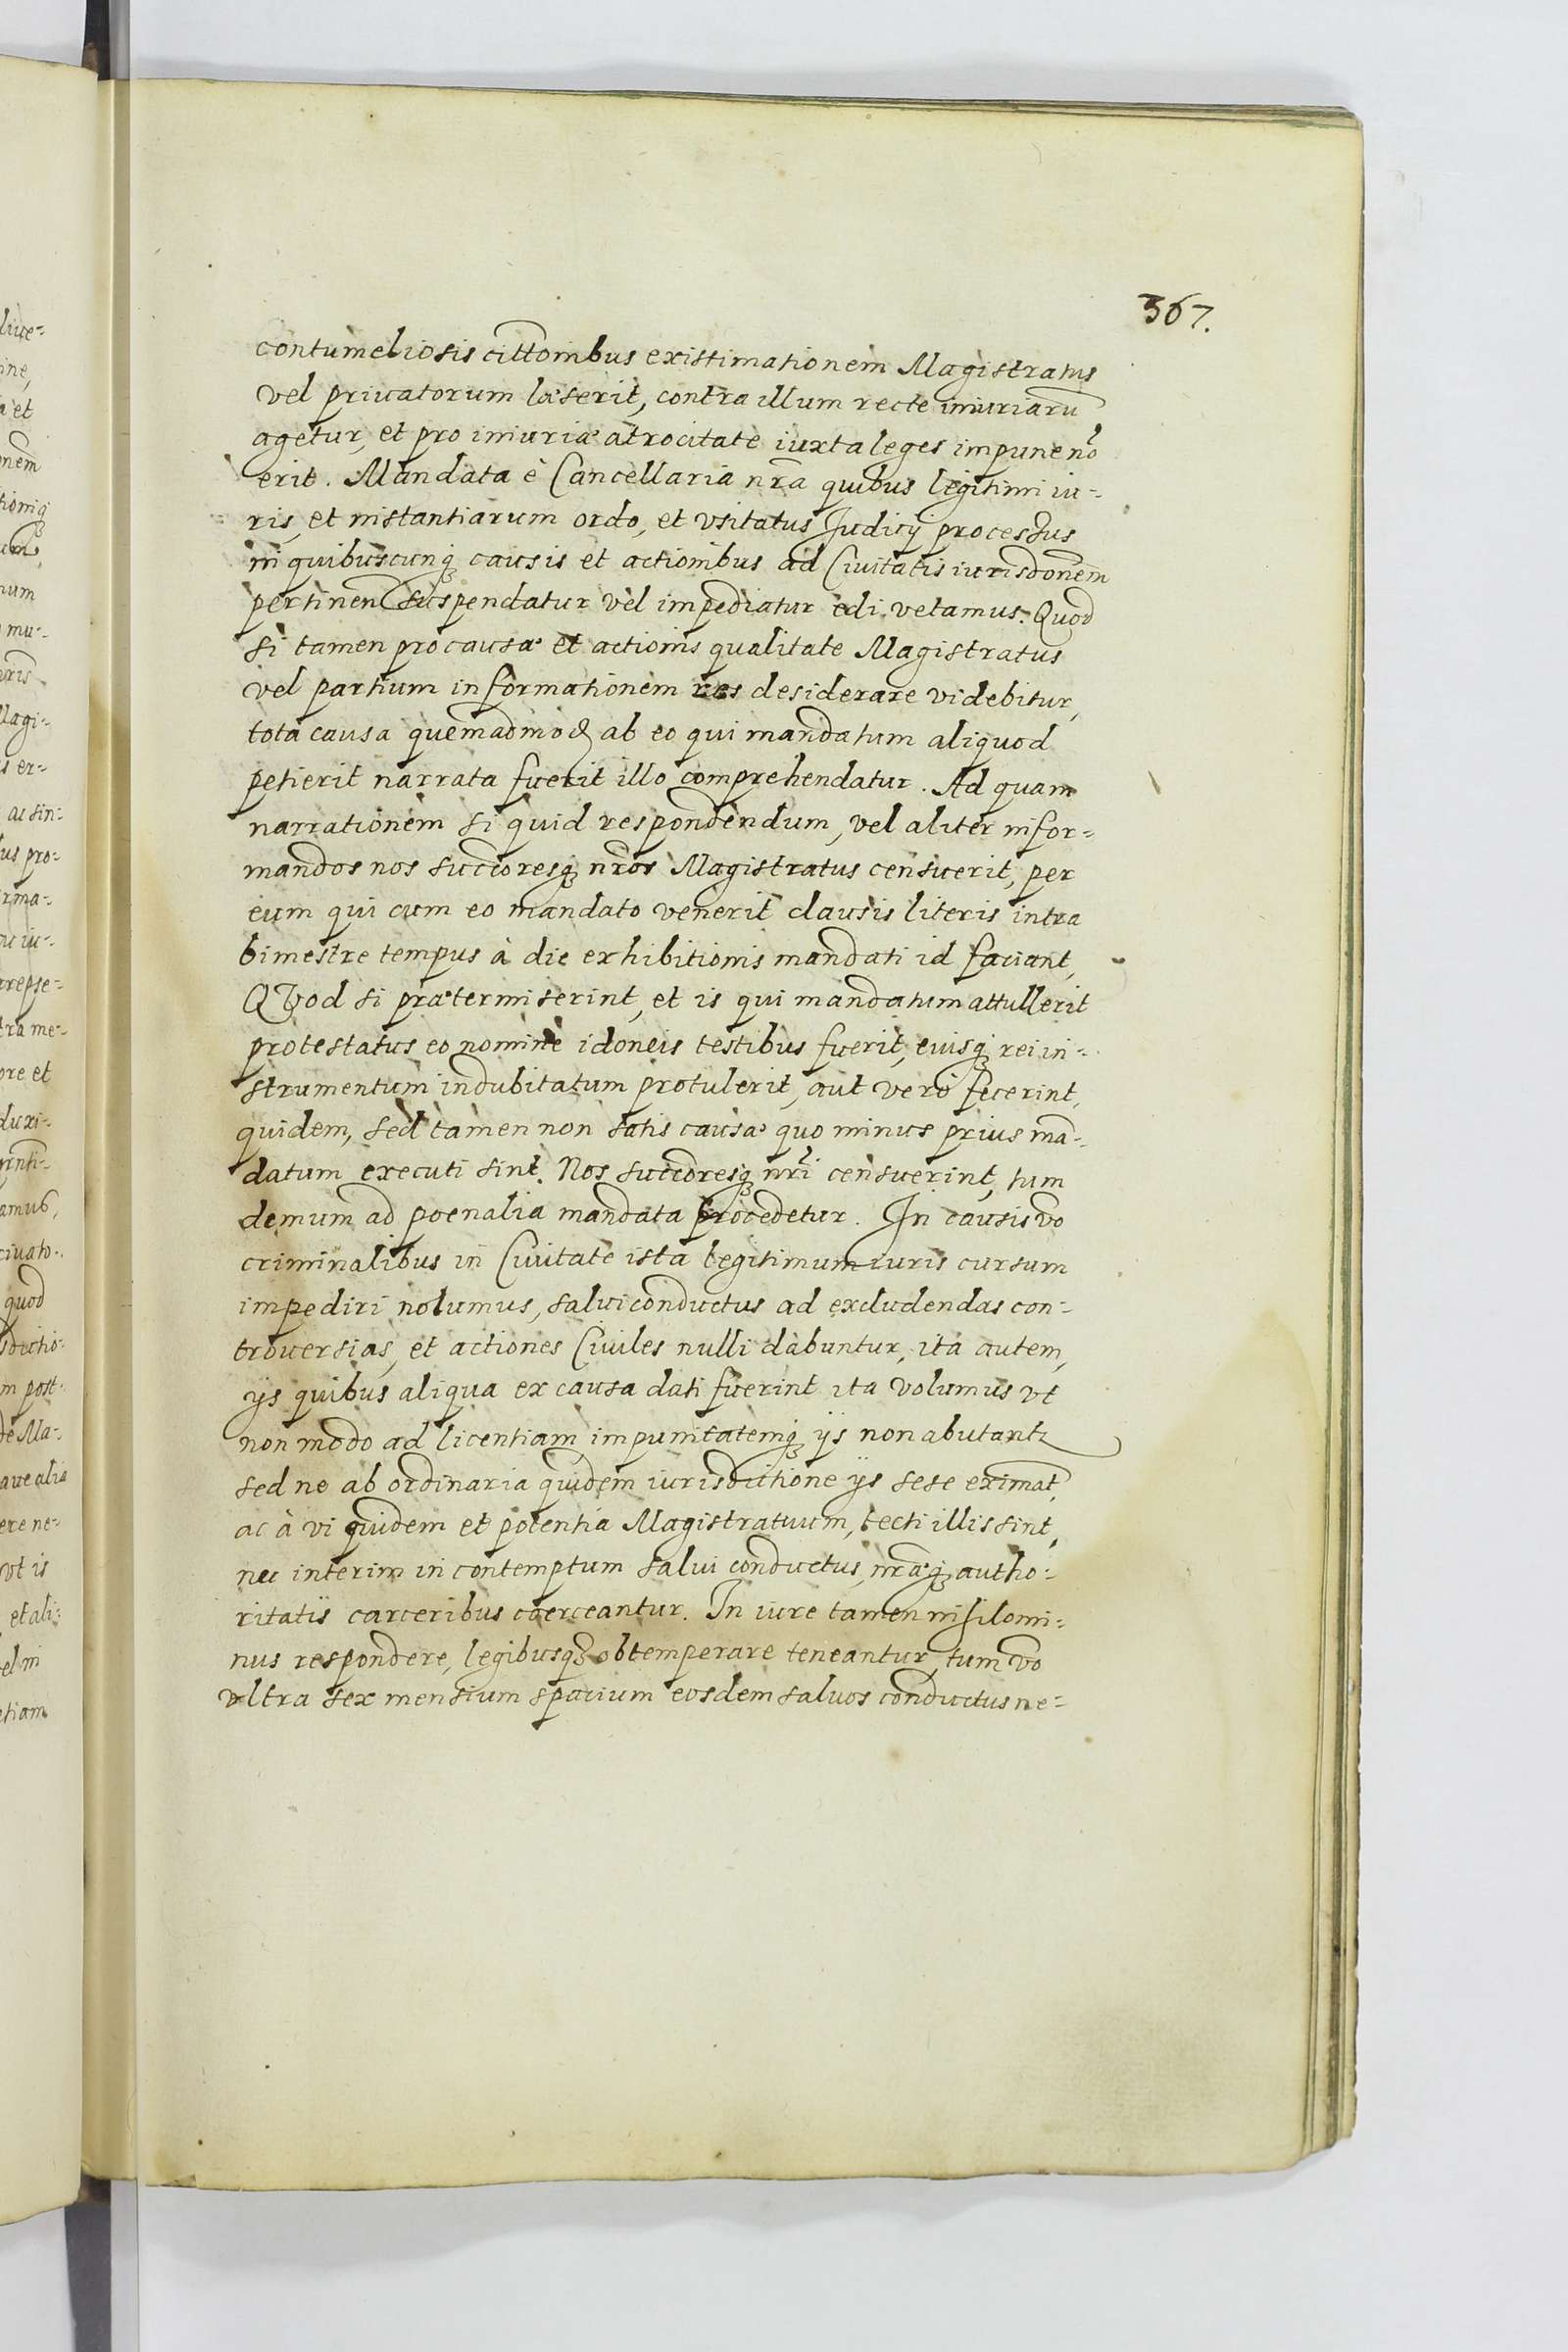 367.
contumeliosis cittõnibus existimationem Magistratus
vel priuatorum læserit, contra illum recte iniuriarũ
agetur, et pro iniuriæ atrocitate iuxta leges impune nõ
erit. Mandata è Cancellaria nr̃a quibus legitimi iu-
ris, et instantiarum ordo, et vsitatus Judicij processus
in quibuscunq causis et actionibus ad Ciuitatis iurisdõnem
pertinen suspendatur vel impediatur edi vetamus. Quod
si tamen pro causæ et actionis qualitate Magistratus
vel partium informationem res desiderare videbitur,
tota causa quemadmod ab eo qui mandatum aliquod
petierit narrata fuerit illo comprehendatur. Ad quam
narrationem si quid respondendum, vel aliter infor-
mandos nos succoresq nr̃os Magistratus censuerit, per
eum qui cum eo mandato venerit clausis literis intra
bimestre tempus à die exhibitionis mandati id faciant,
Quod si prætermiserint, et is qui mandatum attullerit
protestatus eo nomine idoneis testibus fuerit, eiusq rei in-
strumentum indubitatum protulerit, aut vero fecerint,
quidem, sed tamen non satis causæ quo minus prius mã-
datum executi sint. Nos succoresq nr̃i censuerint, tum
demum ad poenalia mandata procedetur. In causis võ
criminalibus in Ciuitate ista legitimum iuris cursum
impediri nolumus, saluiconductus ad excludendas con-
trouersias, et actiones Ciuiles nulli dabuntur, ita autem,
ijs quibus aliqua ex causa dati fuerint ita volumus vt
non modo ad licentiam impunitatemq ijs non abutant
sed ne ab ordinaria quidem iurisdictione ijs sese eximãt,
ac à vi quidem et potentia Magistratuum, tecti illis sint,
nec interim in contemptum salui conductus, nr̃æq autho-
ritatis carceribus coerceantur. In iure tamen nihilomi-
nus respondere, legibusq obtemperare teneantur, tum võ
vltra sex mensium spacium eosdem saluos conductus ne-